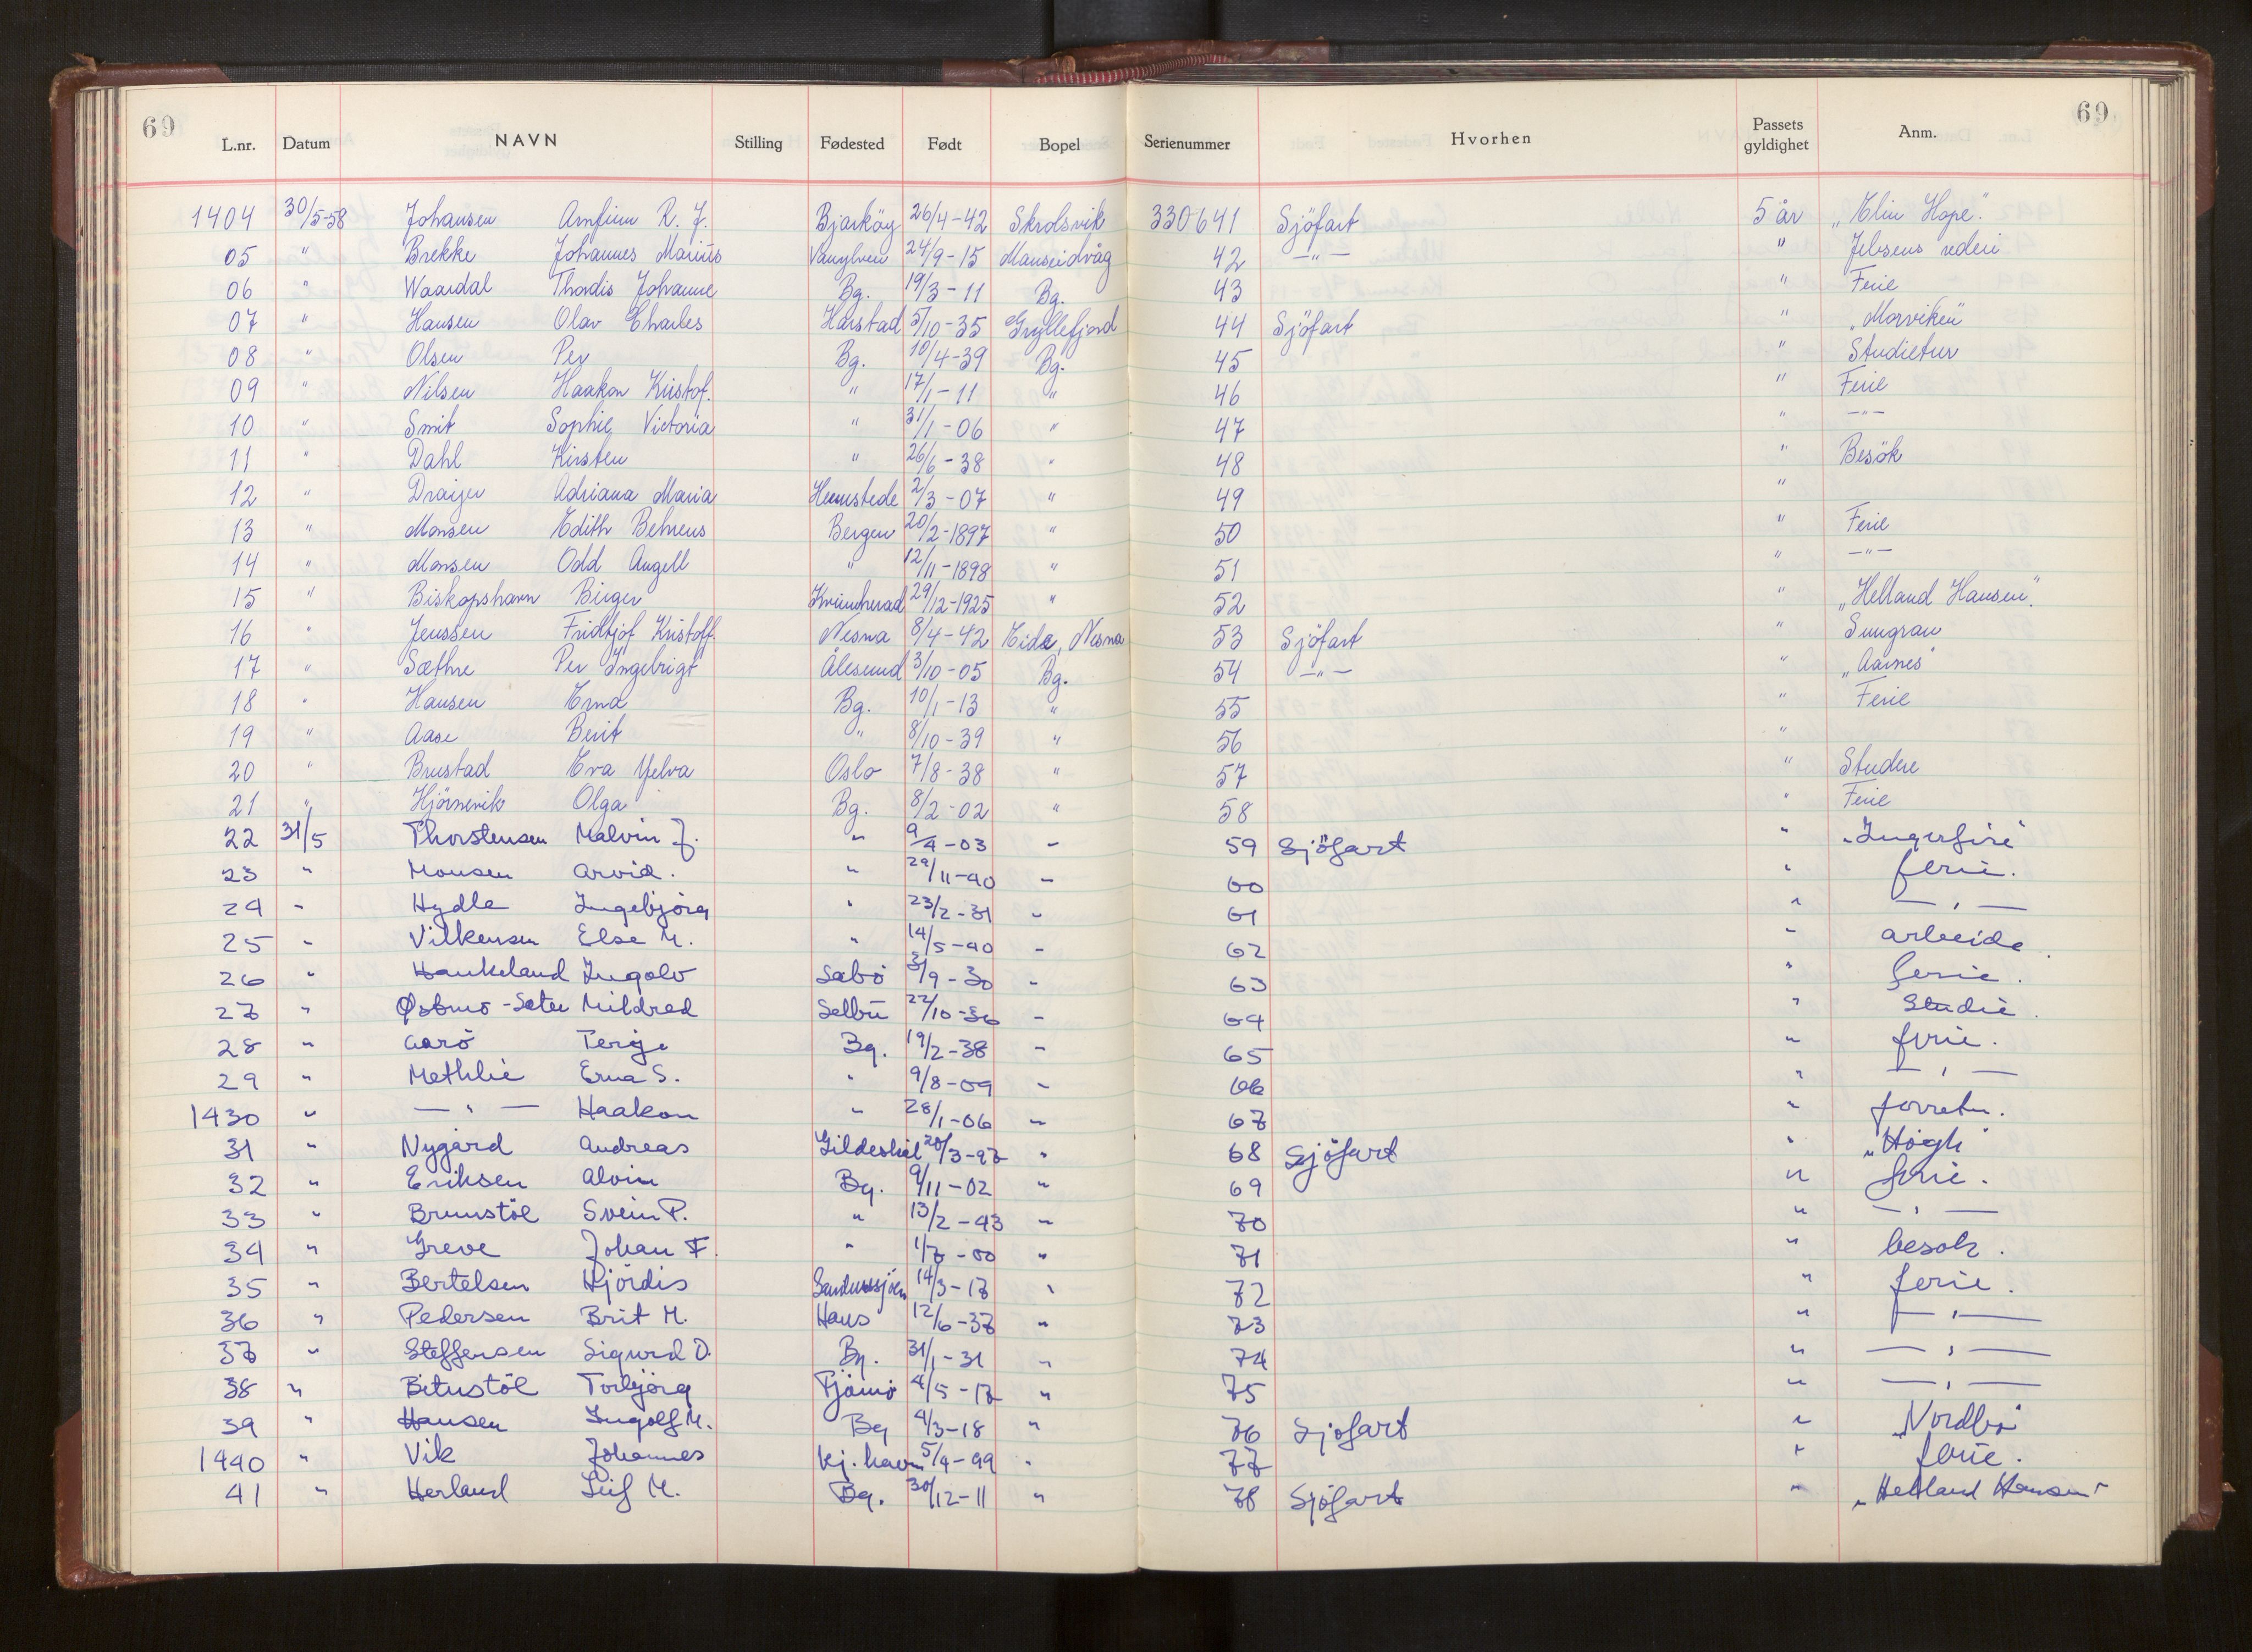 69 69
L.nr. Datum NAVN Stilling Fødested Født Bopel Serienummer Hvorhen Passets gyldighet Anm.
1404 30/5-58 Johansen Arnfinn R. J. Bjarköy 26/4-42 Skrolsvik 330641 Sjöfart 5 år „Elin Hope"
05 " Brekke Johannes Marius Vanylven 24/9-15 Mauseidvåg 42 —"— " Jebsens rederi
06 " Waardal Thordis Johanne Bg. 19/3-11 Bg. 43 " Ferie
07 " Hansen Olav Charles Harstad 5/10-35 Gryllefjord 44 Sjöfart " „Morviken"
08 " Olsen Per Bg. 10/4-39 Bg. 45 " Studietur
09 " Nilsen Haakon Kristof. " 17/1-11 " 46 " Ferie
10 " Smit Sophie Victoria " 31/1-06 " 47 " —"—
11 " Dahl Kirsten " 26/6-38 " 48 " Besök
12 " Draijer Adriana Maria Heemstede 2/3-07 " 49 "
13 " Monsen Edith Behrens Bergen 20/2-1897 " 50 " Ferie
14 " Monsen Odd Angell " 12/11-1898 " 51 " —"—
15 " Biskopshavn Birger Kvinnherad 29/12-1925 " 52 " „Helland Hansen"
16 " Jenssen Fridtjof Kristoff. Nesna 8/4-42 Eide, Nesna 53 Sjöfart " Sungran
17 " Sæthre Per Ingebrigt Ålesund 3/10-05 Bg. 54 —"— " „Aarnes"
18 " Hansen Erna Bg. 10/1-13 " 55 " Ferie
19 " Aase Berit " 8/10-39 " 56 "
20 " Brustad Eva Yelva Oslo 7/8-38 " 57 " Studere
21 " Hjörnevik Olga Bg. 8/2-02 " 58 " Ferie
22 31/5 Thorstensen Malvin J. " 9/4-03 " 59 Sjöfart " "Ingerfire"
23 " Monsen Arvid. " 29/11-40 " 60 " ferie.
24 " Hydle Ingebjörg " 23/2-31 " 61 " — " —
25 " Vilkensen Else M. " 14/5-40 " 62 " arbeide.
26 " Haukeland Ingolv Sæbö 3/9-30 " 63 " ferie.
27 " Østmo-Seter Mildred Selbu 22/10-36 " 64 " Studie.
28 " Aarö Terje Bg. 19/2-38 " 65 " ferie.
29 " Methlie Erna S. " 9/8-09 " 66 " — " —
1430 " — " — Haakon " 28/1-06 " 67 " forretn.
31 " Nygård Andreas Gildeskål 20/3-97 " 68 Sjöfart " "Högh"
32 " Eriksen Alvin Bg. 9/11-02 " 69 " ferie.
33 " Brunstöl Svein P. " 13/2-43 " 70 " — " —
34 " Greve Johan F. " 1/7-00 " 71 " besök.
35 " Bertelsen Hjördis Sandnessjöen 14/3-17 " 72 " ferie.
36 " Pedersen Brit M. Haus 12/6-37 " 73 " — " —
37 " Steffensen Sigurd O. Bg. 31/1-31 " 74 " — " —
38 " Bitustöl Torbjörg Tjömö 4/5-17 " 75 " — " —
39 " Hansen Ingolf M. Bg 4/3-18 " 76 Sjöfart " "Nordbo"
1440 " Vik Johannes Kj.havn 5/4-99 " 77 " ferie.
41 " Herland Leif M. Bg. 30/12-11 " 78 Sjöfart " "Helland Hansen"